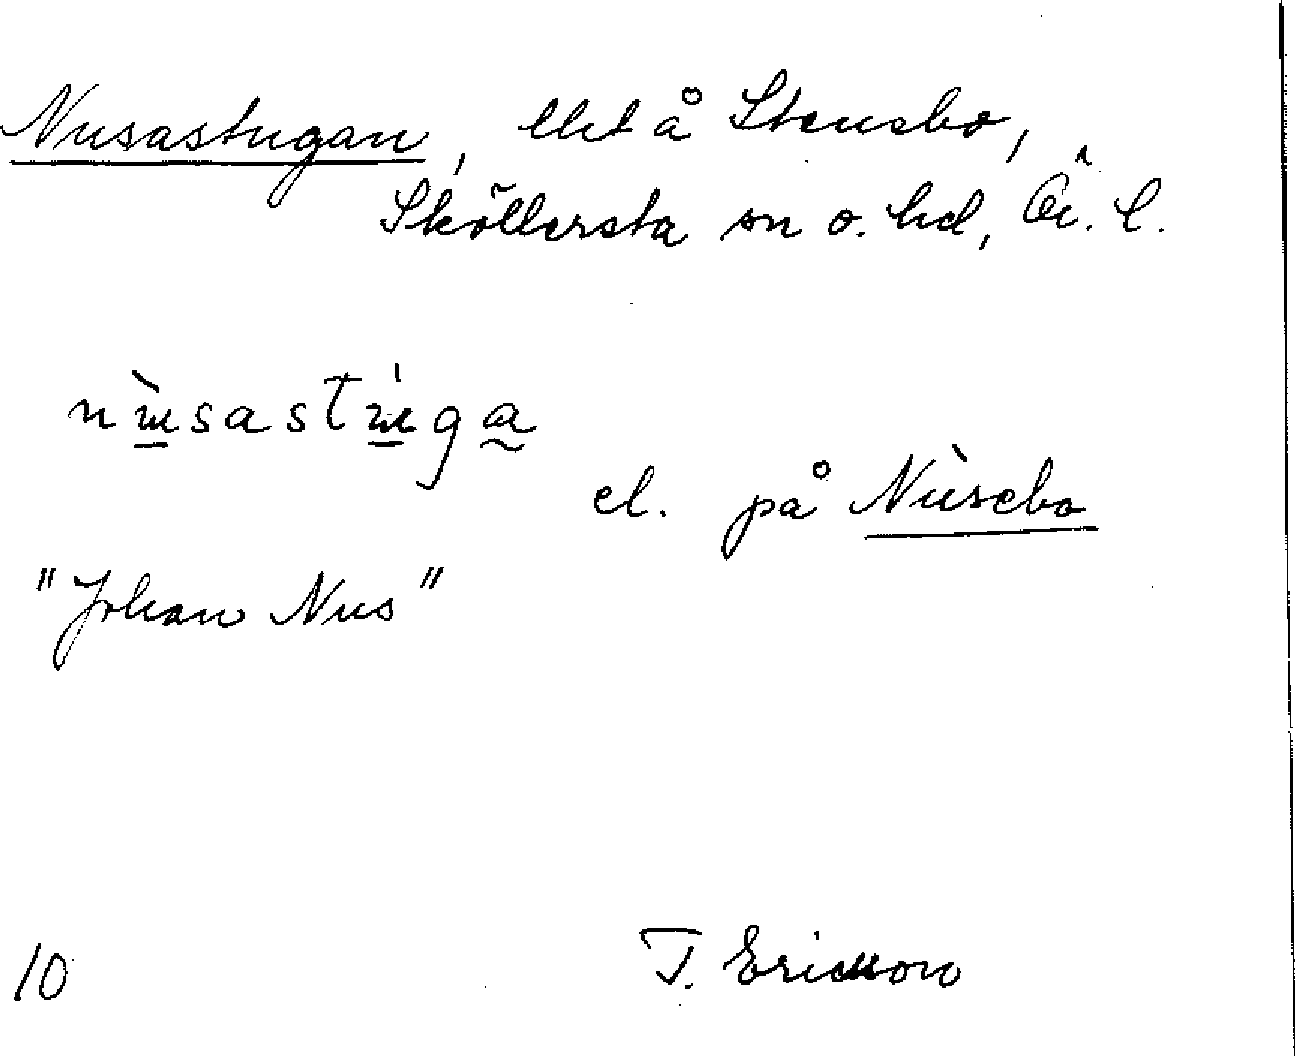 Nusastugan, lht å Stensbo,
Sköllersta sn o. hd, Ör. l.
nu̠̇̀sastu̠̇́ga̰
el. på Nùsebo
"Johan Nus"
10 T. Ericsson